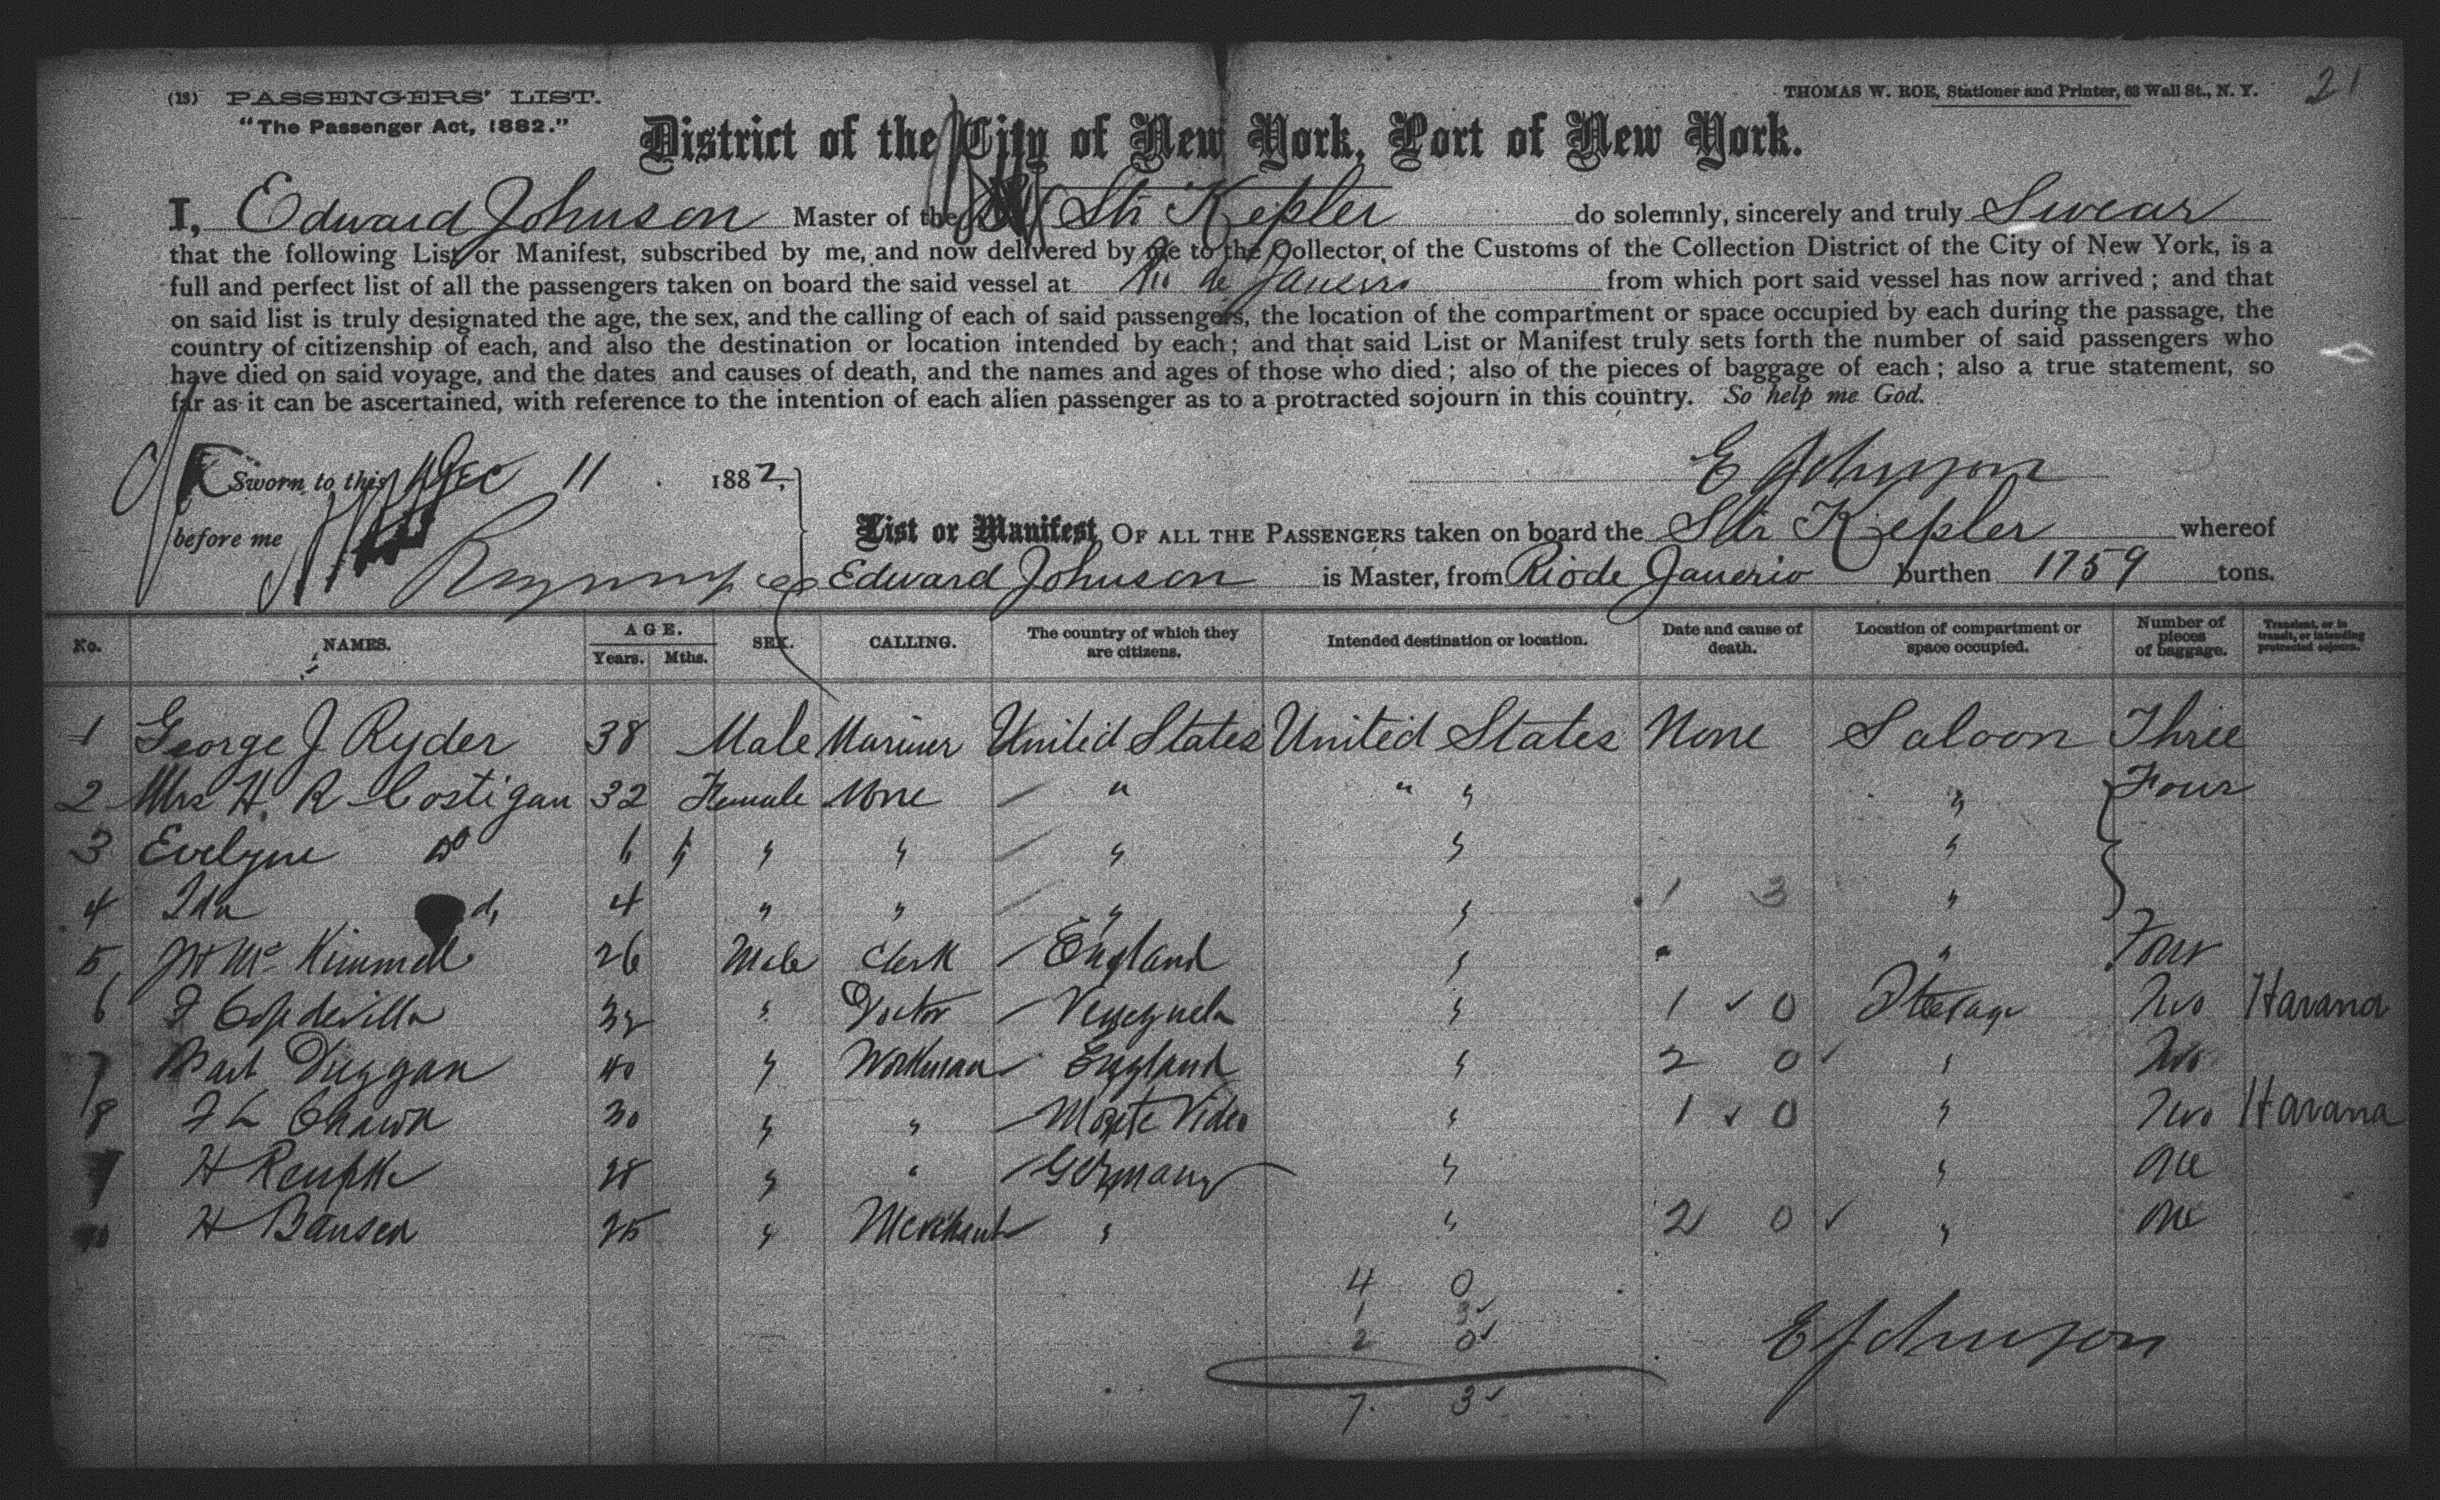 (18) PASSENGERS' LIST.
"The Passenger Act, 1882."
THOMAS W. ROE, Stationer and Printer, 63 Wall St., N. Y.
21
District of the City of New York, Port of New York.
I, Edward Johnson Master of the Str Kepler do solemnly, sincerely and truly Swear
that the following List or Manifest, subscribed by me, and now delivered by me to the Collector of the Customs of the Collection District of the City of New York, is a
full and perfect list of all the passengers taken on board the said vessel at Rio de Janeiro from which port said vessel has now arrived; and that
on said list is truly designated the age, the sex, and the calling of each of said passengers, the location of the compartment or space occupied by each during the passage, the
country of citizenship of each, and also the destination or location intended by each; and that said List or Manifest truly sets forth the number of said passengers who
have died on said voyage, and the dates and causes of death, and the names and ages of those who died; also of the pieces of baggage of each; also a true statement, so
far as it can be ascertained, with reference to the intention of each alien passenger as to a protracted sojourn in this country. So help me God.
Sworn to this Dec 11 1882,
E Johnson
before me
List or Manifest OF ALL THE PASSENGERS taken on board the Str Kepler whereof
Edward Johnson is Master, from Rio de Janerio burthen 1759 tons.
No. NAMES. AGE. Years. Mths. SEX. CALLING. The country of which they are citizens. Intended destination or location. Date and cause of death. Location of compartment or space occupied. Number of pieces of baggage. Transient, or in transit, or intending protracted sojourn.
1 George J Ryder 38 Male Mariner United States United States None Saloon Three
2 Mrs H. R Costigan 32 Female None " " " " Four
3 Evelyne do 6 " " " " " "
4 Ida d, 4 " " " " 1 3 "
5 Mc Kimmell 26 Male Clerk England " " Four
6 32 " Doctor Venezuela " 1 ✓ 0 Steerage Two Havana
7 Duggan 40 " Workman England " 2 0 ✓ " Two
8 30 " " Monte Video " 1 ✓ 0 " Two Havana
9 H 28 " " Germany " " One
10 H Bansen 25 " Merchant " " 2 0 ✓ " One
4 0
1 3 ✓
2 0 ✓
7. 3 ✓
E Johnson